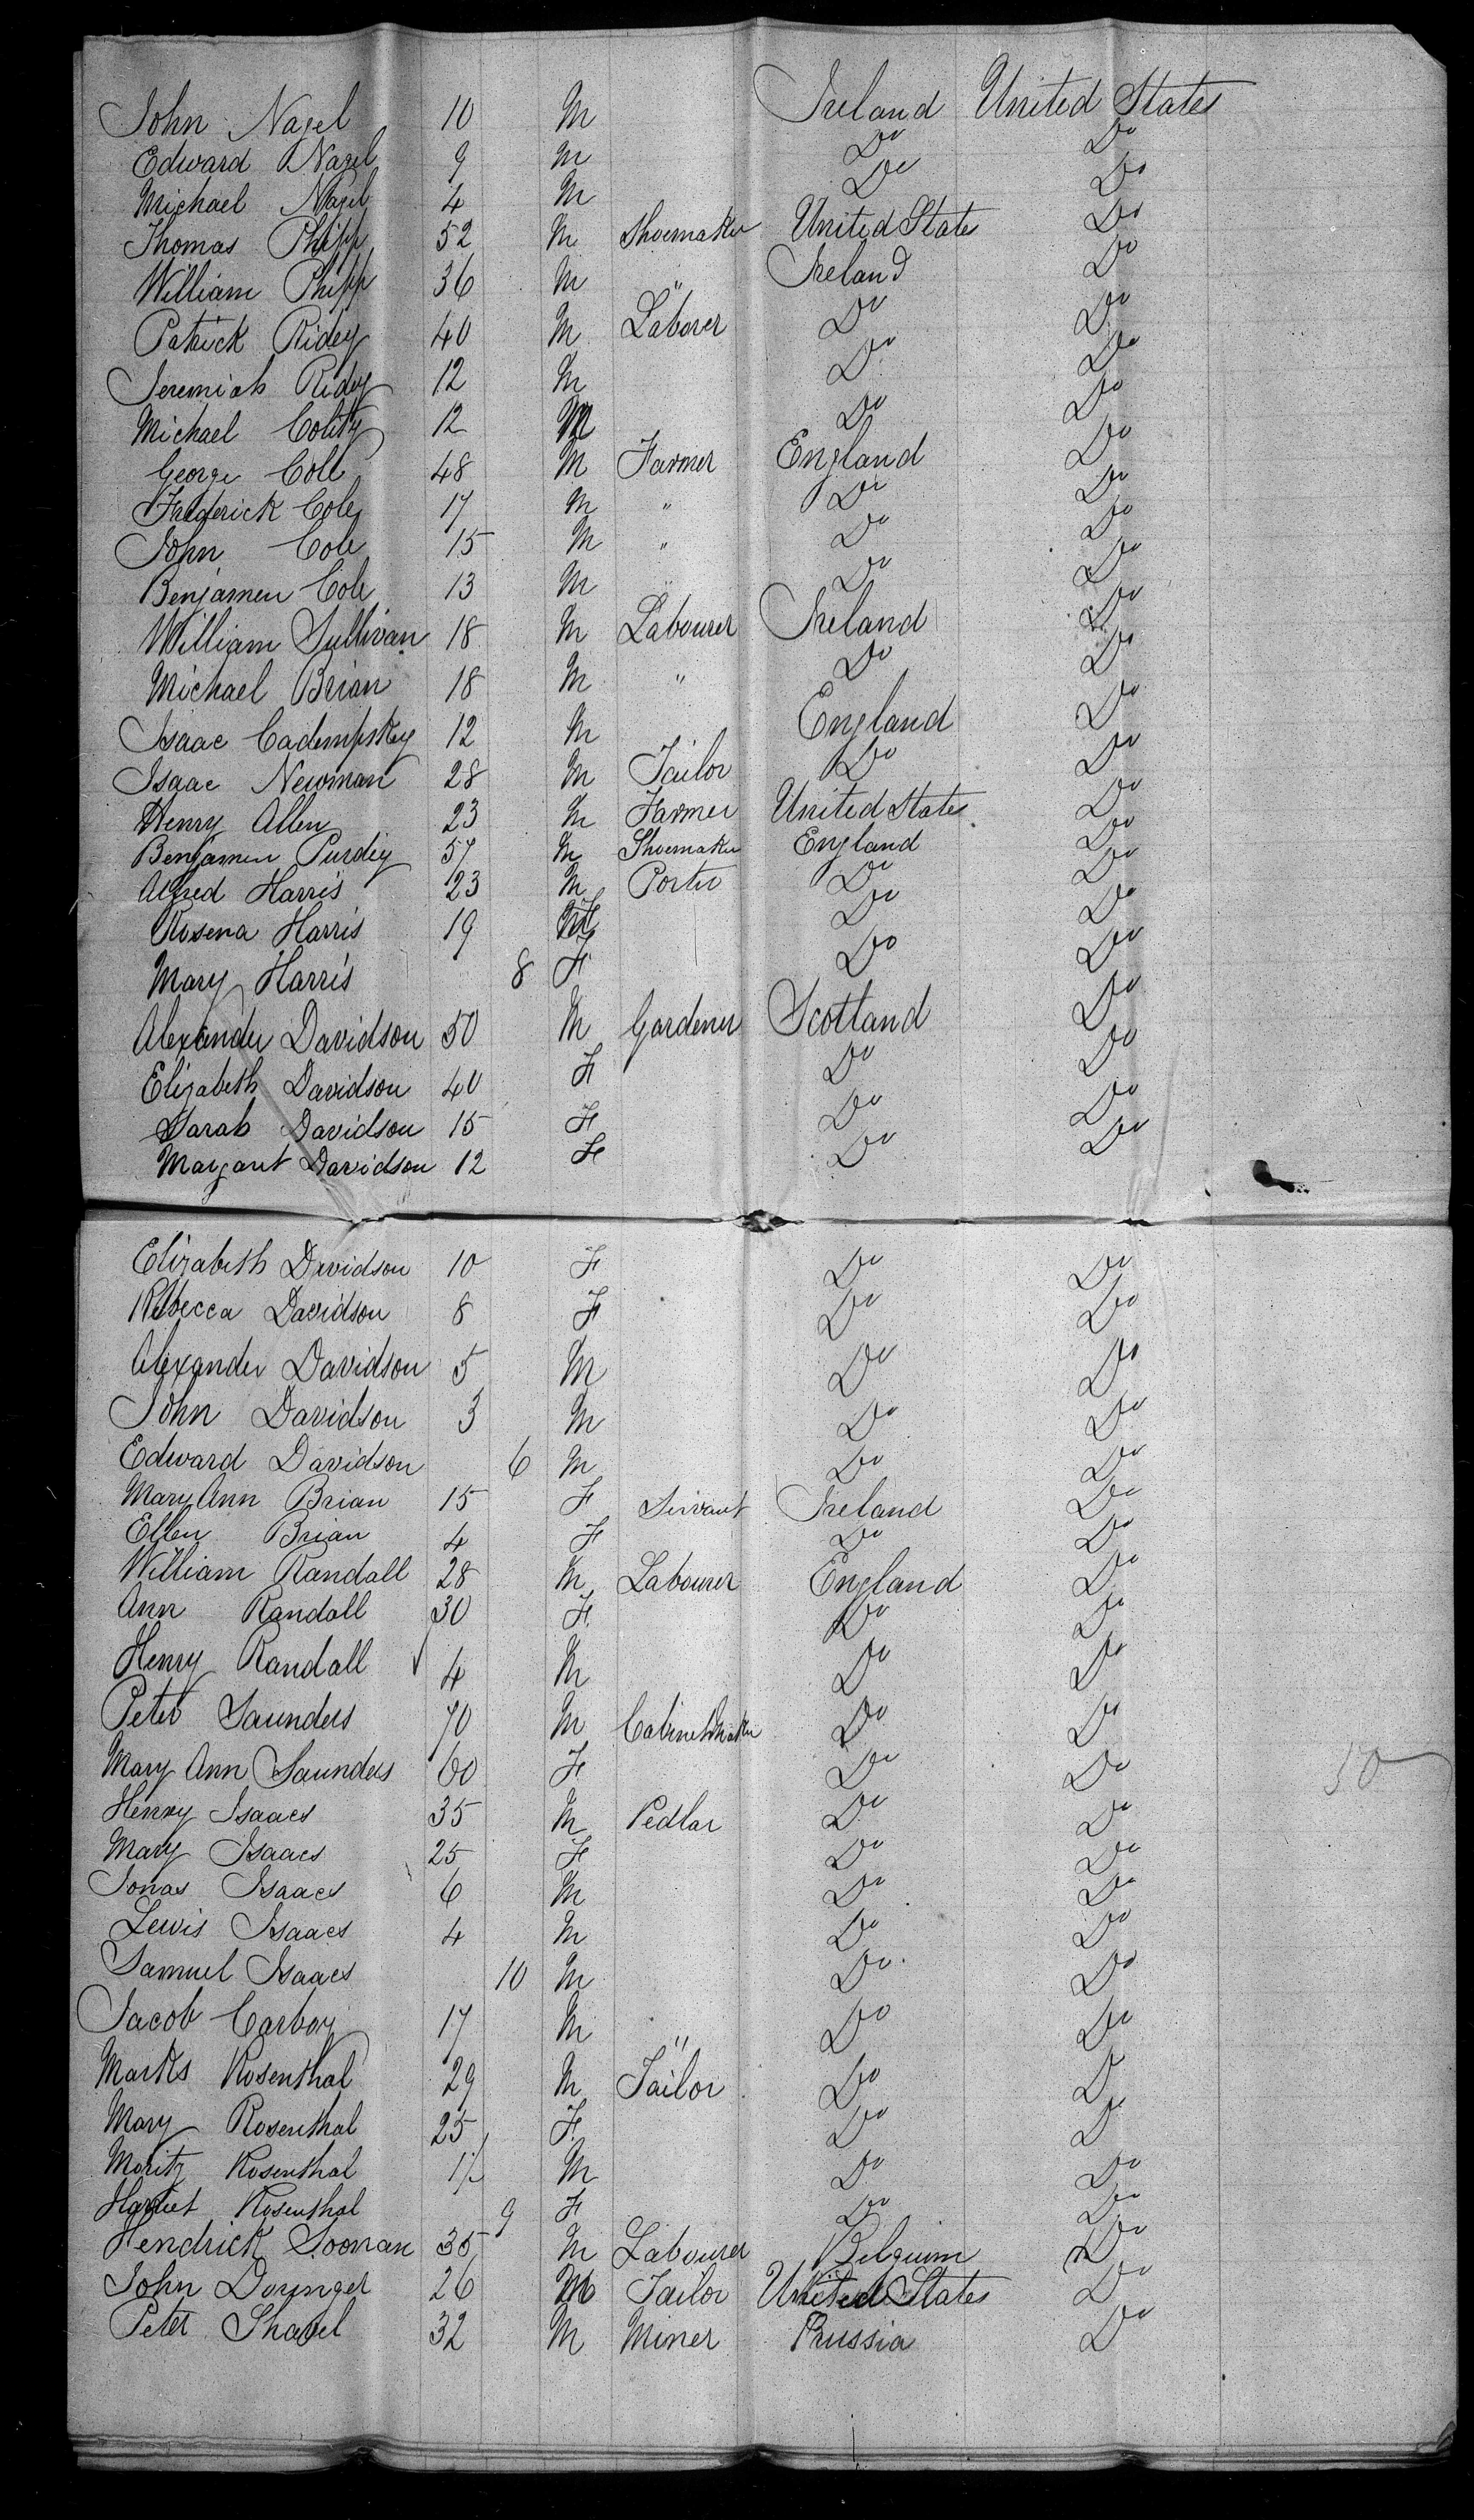 John Nagel 10 M Ireland United States
Edward Nagel 9 M Do Do
Michael Nagel 4 M Do Do
Thomas Phipp 52 M Shoemaker United States Do
William Phipp 36 M " Ireland Do
Patrick Ridey 40 M Laborer Do Do
Jeremiah Ridey 12 M Do Do
Michael 12 M Do Do
George Cole 48 M Farmer England Do
Frederick Cole 17 M " Do Do
John Cole 15 M " Do Do
Benjamen Cole 13 M " Do Do
William Sullivan 18 M Labourer Ireland Do
Michael Brian 18 M " Do Do
Isaac Cadempskey 12 M England Do
Isaac Newman 28 M Tailor Do Do
Henry Allen 23 M Farmer United States Do
Benjamen Purdey 57 M Shoemaker England Do
Alfred Harris 23 M Porter Do Do
Rosena Harris 19 F Do Do
Mary Harris 8 F Do Do
Alexander Davidson 50 M Gardener Scotland Do
Elizabeth Davidson 40 F Do Do
Sarah Davidson 15 F Do Do
Margaret Davidson 12 F Do Do
Elizabeth Davidson 10 F Do Do
Rebecca Davidson 8 F Do Do
Alexander Davidson 5 M Do Do
John Davidson 3 M Do Do
Edward Davidson 6 M Do Do
Mary Ann Brian 15 F Servant Ireland Do
Ellen Brian 4 F Do Do
William Randall 28 M Labourer England Do
Ann Randall 30 F Do Do
Henry Randall 4 M Do Do
Peter Saunders 70 M Cabinetmaker Do Do
Mary Ann Saunders 60 F Do Do 50
Henry Isaacs 35 M Pedlar Do Do
Mary Isaacs 25 F Do Do
Jonas Isaacs 6 M Do Do
Lewis Isaacs 4 M Do Do
Samuel Isaacs 10 M Do Do
Jacob Carboy 17 M " Do Do
Marks Rosenthal 29 M Tailor Do Do
Mary Rosenthal 25 F Do Do
Moritz Rosenthal M Do Do
Harriet Rosenthal 9 F Do Do
Hendrick Sooman 35 M Labourer Belguim Do
John Doringer 26 M Tailor United States Do
Peter Shavel 32 M Miner Prussia Do